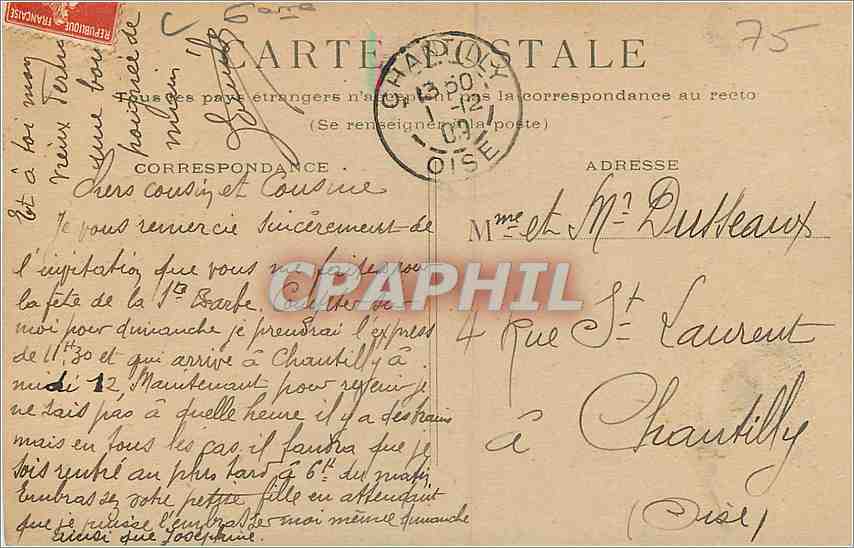 RÉPUBLIQUE
FRANÇAISE
75
CARTE POSTALE
Tous les pays étrangers n'acceptent pas la correspondance au recto
(Se renseigner à la poste)
CHANTILLY
13 50
1-12
09
OISE
CORRESPONDANCE
ADRESSE
Chers cousin et Cousine
Je vous remercie sincèrement de
l'invitation que vous me faites pour
la fête de la Ste Barbe. Compter sur
moi pour dimanche je prendrai l'express
de 11H30 et qui arrive à Chantilly à
midi 12 Maintenant pour revenir je
ne sais pas à quelle heure il y a des trains
mais en tous les cas il faudra que je
sois rentré au plus tard à 6H du matin
Embrassez votre petite fille en attendant
que je puisse l'embrasser moi même dimanche
ainsi que Joséphine.
Et à toi mon
vieux
que bon
poignée de
main
Mme et Mr Dusseaux
4 Rue St Laurent
à Chantilly
(Oise)
CPAPHIL